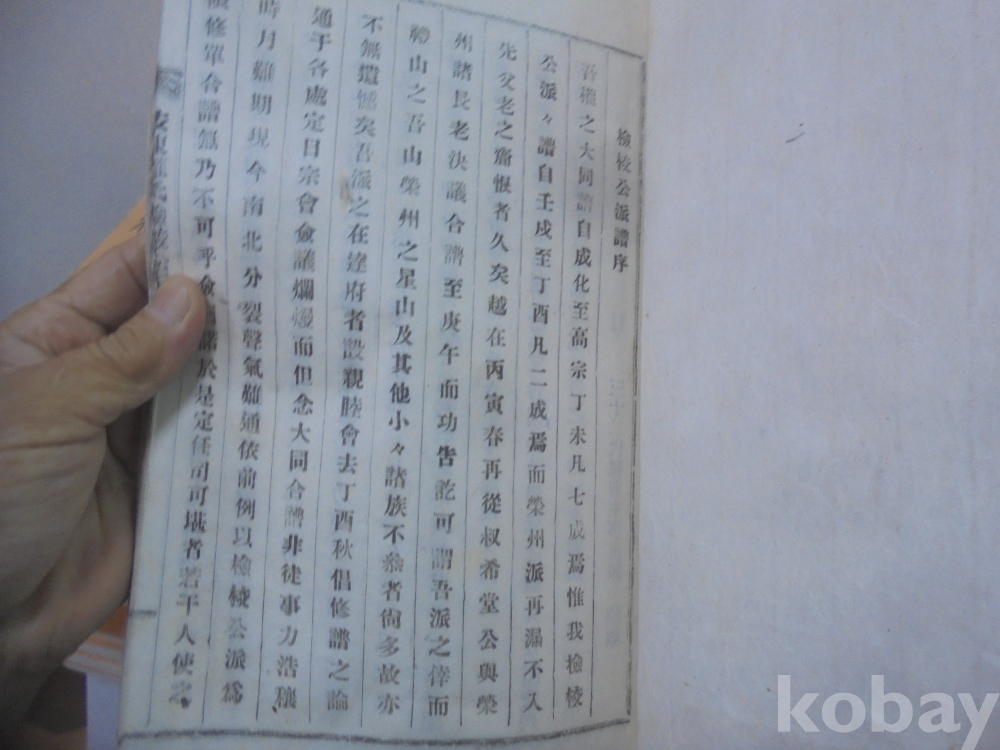 檢校公派譜序
吾權之大同譜自成化至高宗丁未凡七成焉惟我檢校
公派々譜自壬戌至丁酉凡二成焉而榮州派再漏不入
先父老之齎恨者久矣越在丙寅春再從叔希堂公與榮
州諸長老決議合譜至庚午而功告訖可謂吾派之倖而
禮山之吾山榮州之星山及其他小々諸族不叅者尙多故亦
不無遺憾矣吾派之在達府者設親睦會去丁酉秋倡修譜之論
通于各處定日宗會僉議爛熳而但念大同合譜非徒事力浩穰
時月難期現今南北分裂聲氣難通依前例以檢校公派爲
修單合譜無乃不可乎僉 諸於是定任司可堪者若干人使之
kobay